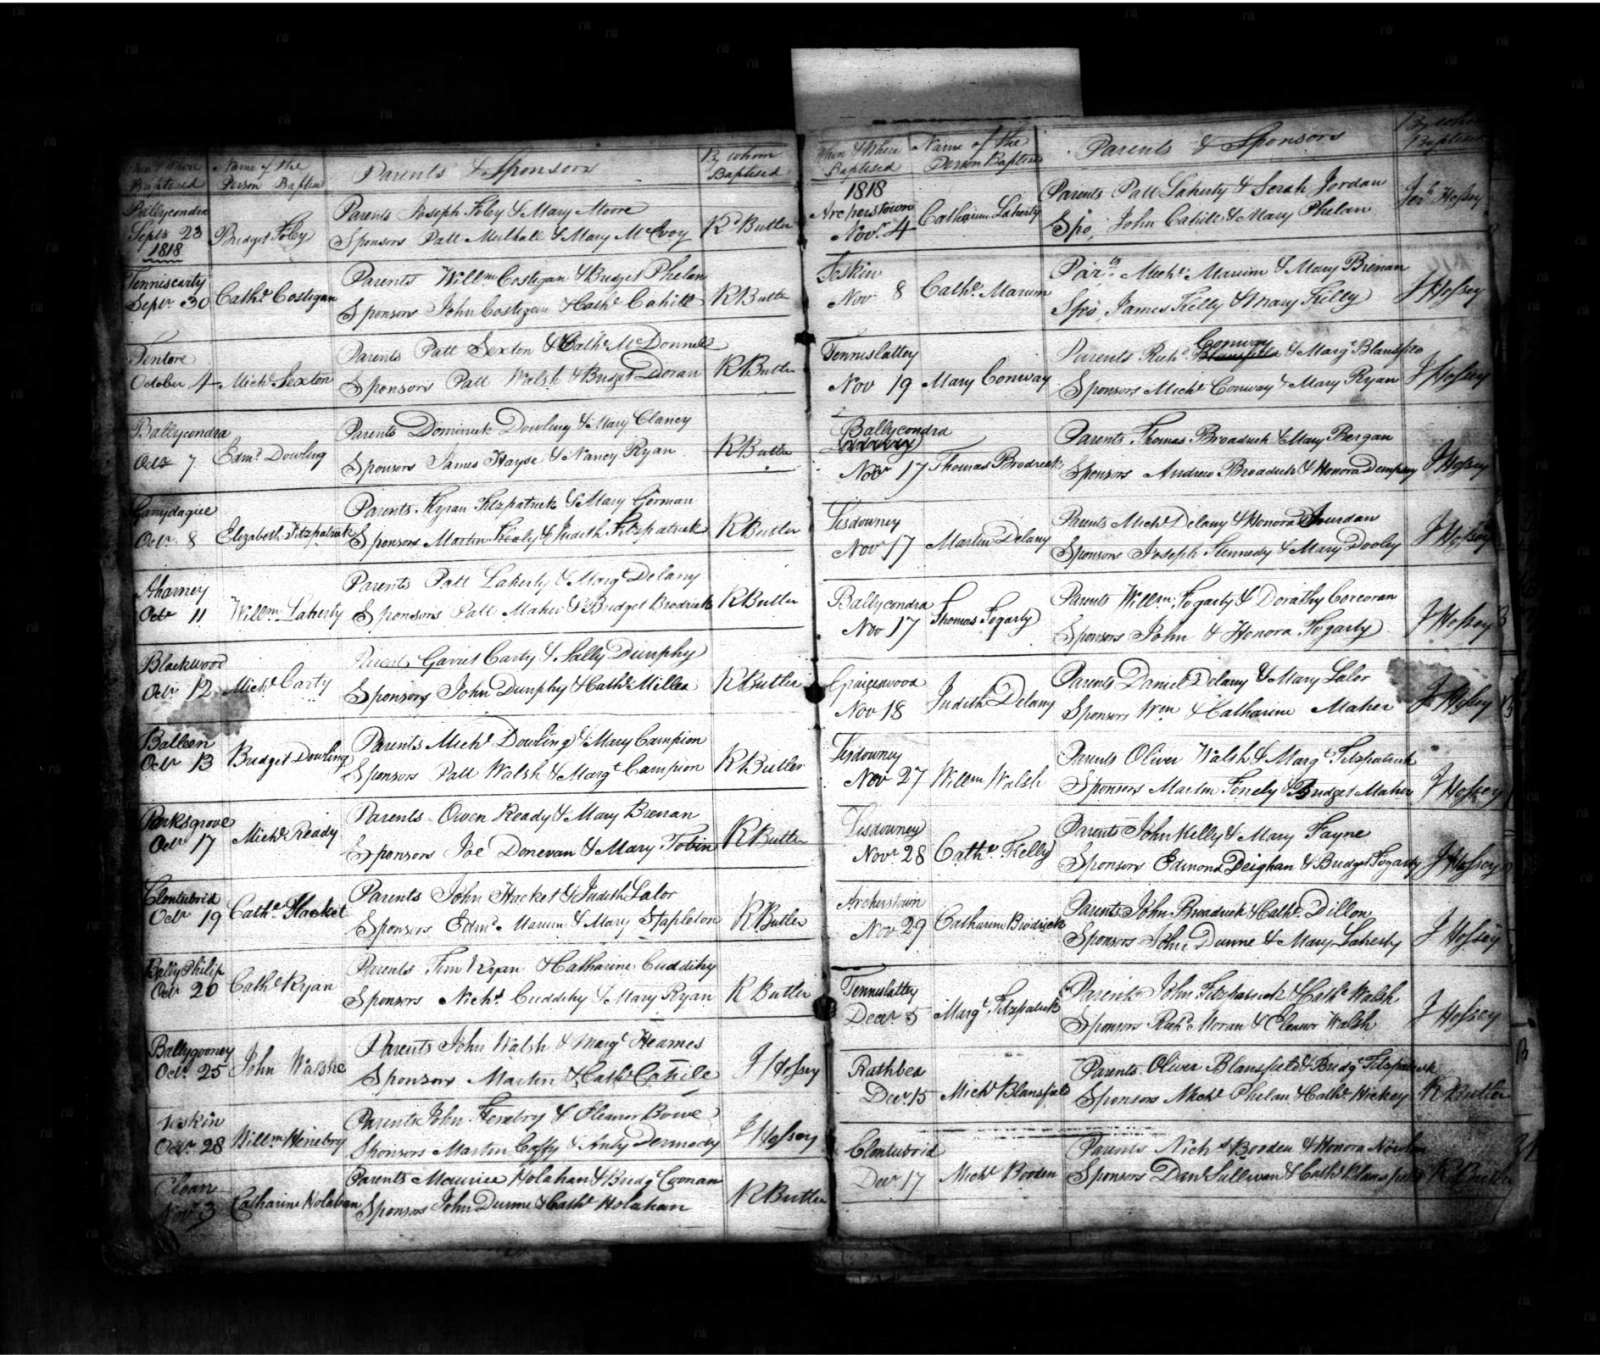 When & Where Baptised
Name of the Person Baptised
Parents & Sponsors
By whom Baptised
Ballycondra
Septr 23
1818
Bridget Foley
Parents Joseph Foley & Mary Moore
Sponsors Patt Mulhall & Mary McEvoy
Rd Butler
Tenniscarty
Septr 30
Cathe Costigan
Parents Willm Costigan & Bridget Phelan
Sponsors John Costigan & Cathe Cahill
R Butler
Tentore
October 4
Michl Sexton
Parents Patt Sexton & Cathe McDonnell
Sponsors Patt Walsh & Bridget Doran
R Butler
Ballycondra
Octr 7
Edmd Dowling
Parents Dominick Dowling & Mary Clancy
Sponsors James Hayse & Nancy Ryan
R Butler
Octr 8
Elizabeth Fitzpatrick
Parents Kyran Fitzpatrick & Mary Gorman
Sponsors Martin Kealy & Judith Fitzpatrick
R Butler
Aharney
Octr 11
Willm Laherty
Parents Patt Laherty & Margt Delany
Sponsors Patt Maher & Bridget Brodrick
R Butler
Blackwood
Octr 12
Michl Carty
Parents Garret Carty & Sally Dunphy
Sponsors John Dunphy & Cathe Millea
R Butler
Balleen
Octr 13
Bridget Dowling
Parents Michl Dowling & Mary Campion
Sponsors Patt Walsh & Margt Campion
R Butler
Parksgrove
Octr 17
Michl Ready
Parents Owen Ready & Mary Brenan
Sponsors Joe Donevan & Mary Tobin
R Butler
Clontubrid
Octr 19
Cathe Hacket
Parents John Hacket & Judith Lalor
Sponsors Edmd Marum & Mary Stapleton
R Butler
BallyPhilip
Octr 20
Cathe Ryan
Parents Tim Ryan & Catharine Cuddihy
Sponsors Nichs Cuddihy & Mary Ryan
R Butler
Ballygooney
Octr 25
John Walshe
Parents John Walsh & Margt Hearnes
Sponsors Martin & Cathe Cahile
J Hossey
Foskin
Octr 28
Willm Henebry
Parents John Henebry & Eleanor Bowe
Sponsors Martin Coffy & Anty Dennedy
J Hossey
Cloan
Novr 3
Catharine Holahan
Parents Maurice Holahan & Bridgt Coonan
Sponsors John Dunne & Cathe Holahan
R Butler
When & Where Baptised
Name of the Person Baptised
Parents & Sponsors
By whom Baptised
1818
Archerstown
Novr 4
Catharine Laherty
Parents Patt Laherty & Sarah Jordan
Spo John Cahill & Mary Phelan
Jer Hossey
Foskin
Nov 8
Cathe Marum
Parts Michl Marum & Mary Brenan
Spo James Kelly & Mary Kelly
J Hossey
Tennislattey
Nov 19
Mary Conway
Conway
Parents Richd Blansfield & Margt Blansfield
Sponsors Michl Conway & Mary Ryan
J Hossey
Ballycondra
Nov 17
Thomas Brodrick
Parents Thomas Broadrick & Mary Bergan
Sponsors Andrew Broadrick & Honora Dempsey
J Hossey
Lisdowney
Nov 17
Martin Delany
Parents Michl Delany & Honora Jourdan
Sponsors Joseph Kennedy & Mary Dooley
J Hossey
Ballycondra
Nov 17
Thomas Fogarty
Parents Willm Fogarty & Dorathy Corcoran
Sponsors John & Honora Fogarty
J Hossey
Graigeswood
Nov 18
Judith Delany
Parents Daniel Delany & Mary Lalor
Sponsors Wm & Catharine Maher
J Hossey
Lisdowney
Nov 27
Willm Walsh
Parents Oliver Walsh & Margt Fitzpatrick
Sponsors Martin Fenely & Bridget Maher
J Hossey
Lisdowney
Novr 28
Cathe Kelly
Parents John Kelly & Mary Fayne
Sponsors Edmond Deighan & Bridget Fogarty
J Hossey
Archerstown
Nov 29
Catharine Brodrick
Parents John Broadrick & Cathe Dillon
Sponsors John Dunne & Mary Laherty
J Hossey
Tennislattey
Decr 5
Margt Fitzpatrick
Parents John Fitzpatrick & Cathe Walsh
Sponsors Richd Moran & Eleanor Walsh
J Hossey
Rathbea
Decr 15
Michl Blansfield
Parents Oliver Blansfield & Bridgt Fitzpatrick
Sponsors Michl Phelan & Cathe Hickey
R Butler
Clontubrid
Decr 17
Michl Booden
Parents Nichs Booden & Honora Nowlan
Sponsors Danl Sullivan & Cathe Blansfield
R Butler